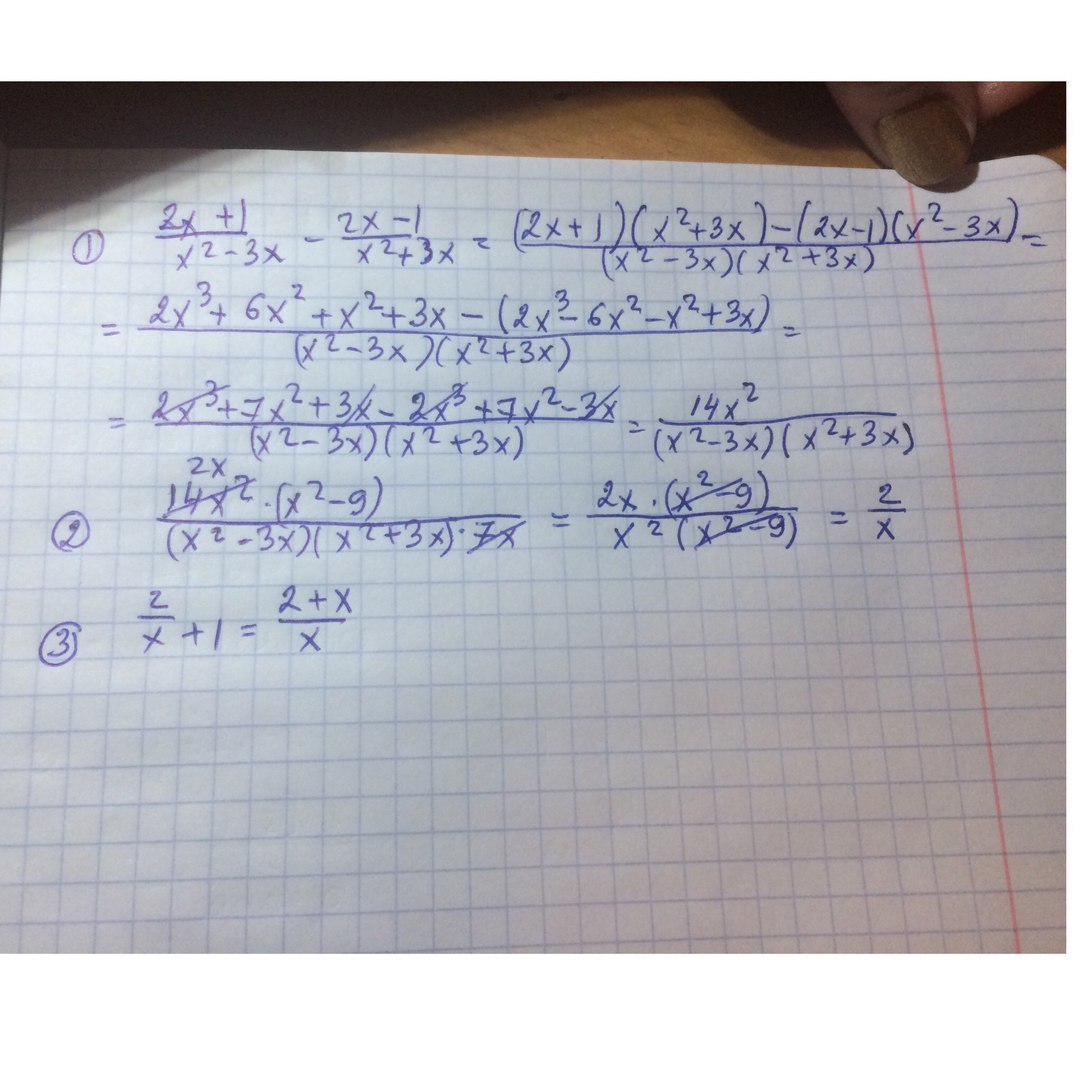 ① (2x+1)/(x²-3x) - (2x-1)/(x²+3x) = ((2x+1)(x²+3x)-(2x-1)(x²-3x))/((x²-3x)(x²+3x)) =
= (2x³+6x²+x²+3x-(2x³-6x²-x²+3x))/((x²-3x)(x²+3x)) =
= (2x³+7x²+3x-2x³+7x²-3x)/((x²-3x)(x²+3x)) = 14x²/((x²-3x)(x²+3x))
2x
② (14x²·(x²-9))/((x²-3x)(x²+3x)·7x) = (2x·(x²-9))/(x²(x²-9)) = 2/x
③ 2/x + 1 = (2+x)/x